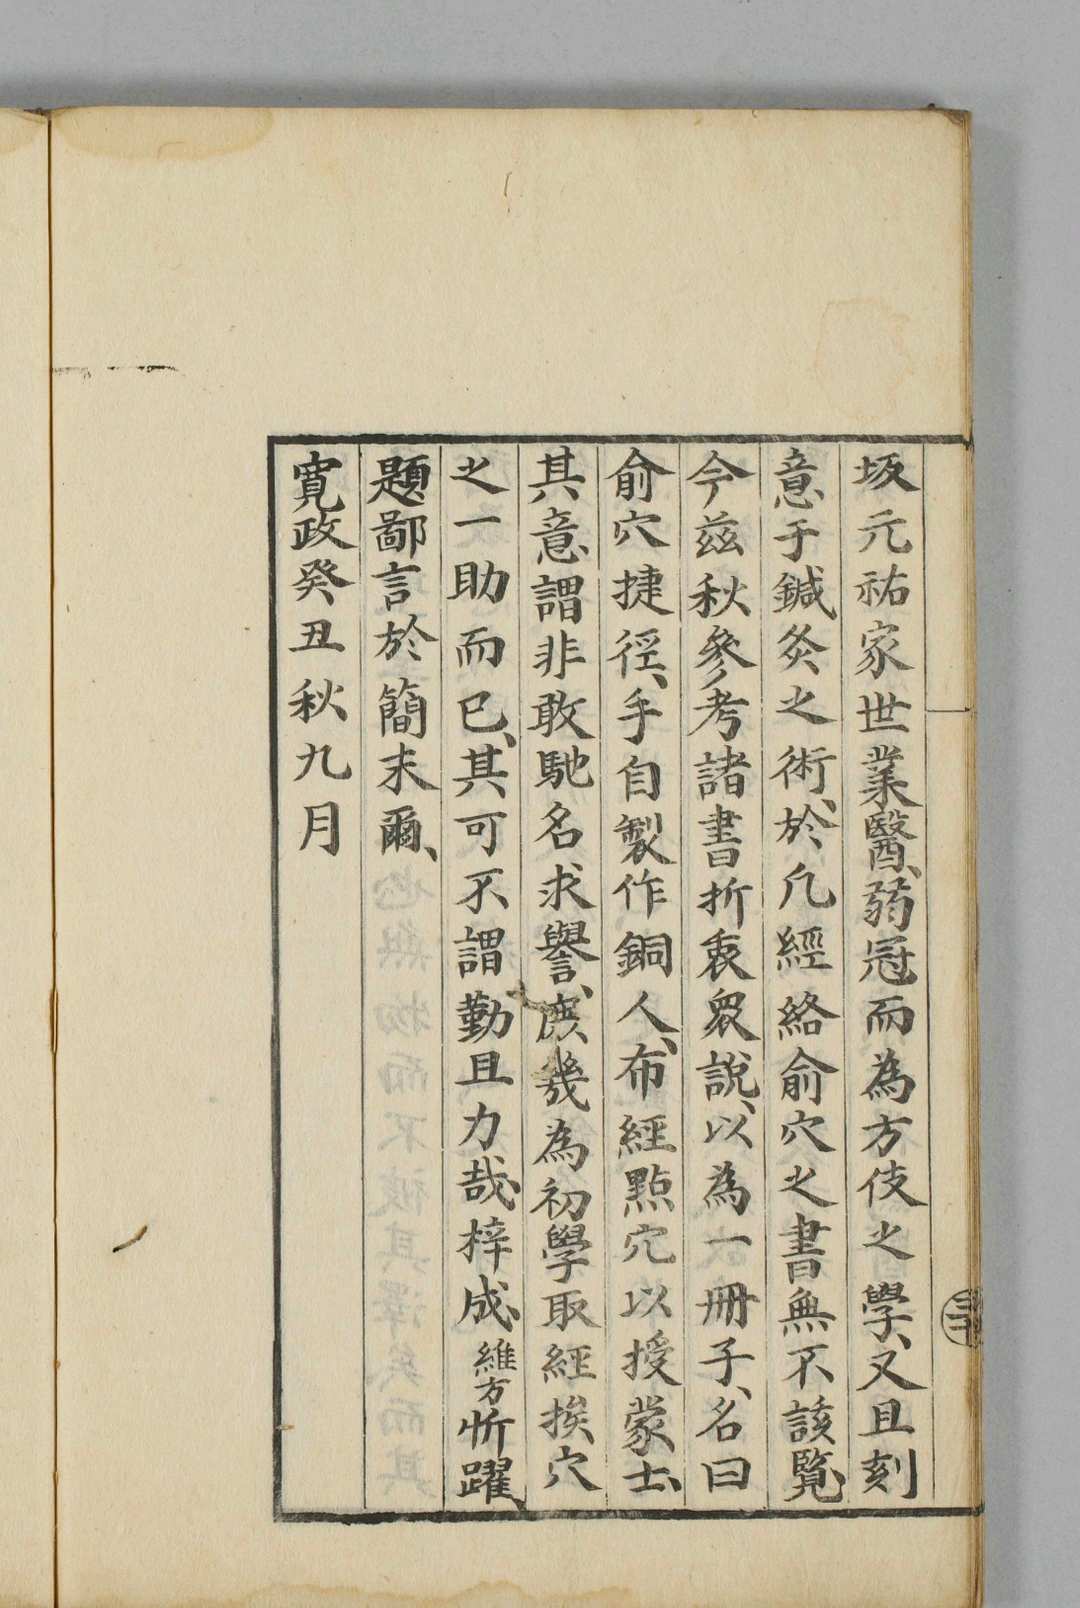 坂元祐家世業醫、弱冠而為方伎之學、又且刻
意于鍼灸之術、於凡經絡俞穴之書無不該覽
今茲秋參考諸書折衷衆說、以為一冊子、名曰
俞穴捷徑、手自製作銅人、布經點穴以授蒙士、
其意謂非敢馳名求譽、庶幾為初學取經挨穴
之一助而已、其可不謂勤且力哉梓成維方忻躍、
題鄙言於簡末爾、
寛政癸丑秋九月